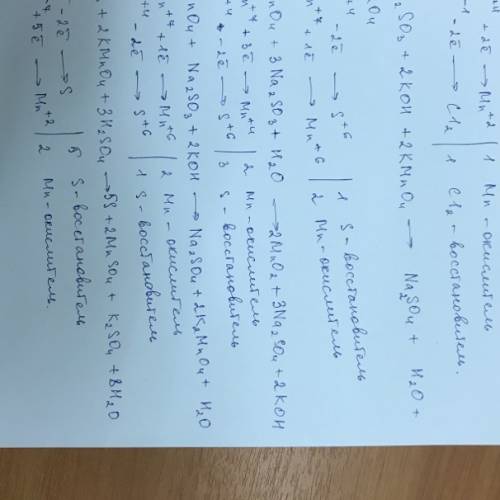 +4 +2ē → Mn+2 | 1 Mn-окислитель
-1 -2ē → Cl2 | 1 Cl2-восстановитель.
2SO3 + 2KOH + 2KMnO4 → Na2SO4 + H2O +
nO4
+4 -2ē → S+6 | 1 S-восстановитель
n+7 +1ē → Mn+6 | 2 Mn-окислитель
nO4 + 3Na2SO3 + H2O → 2MnO2 + 3Na2SO4 + 2KOH
n+7 +3ē → Mn+4 | 2 Mn-окислитель
+4 -2ē → S+6 | 3 S-восстановитель
nO4 + Na2SO3 + 2KOH → Na2SO4 + 2K2MnO4 + H2O
n+7 +1ē → Mn+6 | 2 Mn-окислитель
+4 -2ē → S+6 | 1 S-восстановитель
+ 2KMnO4 + 3H2SO4 → 5S + 2MnSO4 + K2SO4 + 8H2O
-2ē → S | 5 S-восстановитель
+5ē → Mn+2 | 2 Mn-окислитель.